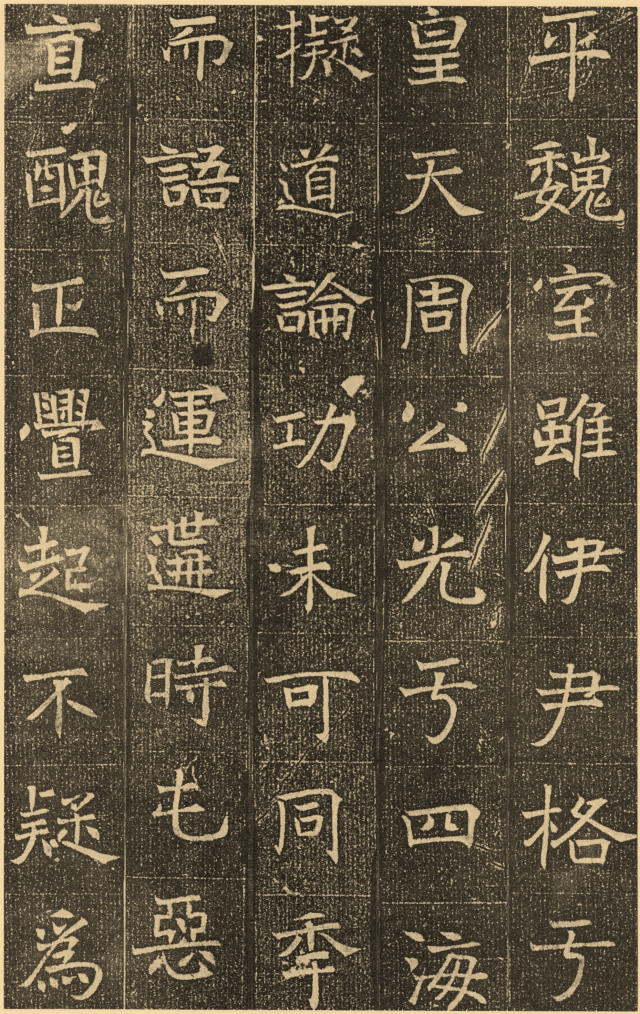 平魏室雖伊尹格于
皇天周公光于四海
擬道論功未可同年
而語而運遘時屯惡
直醜正舋起不疑為